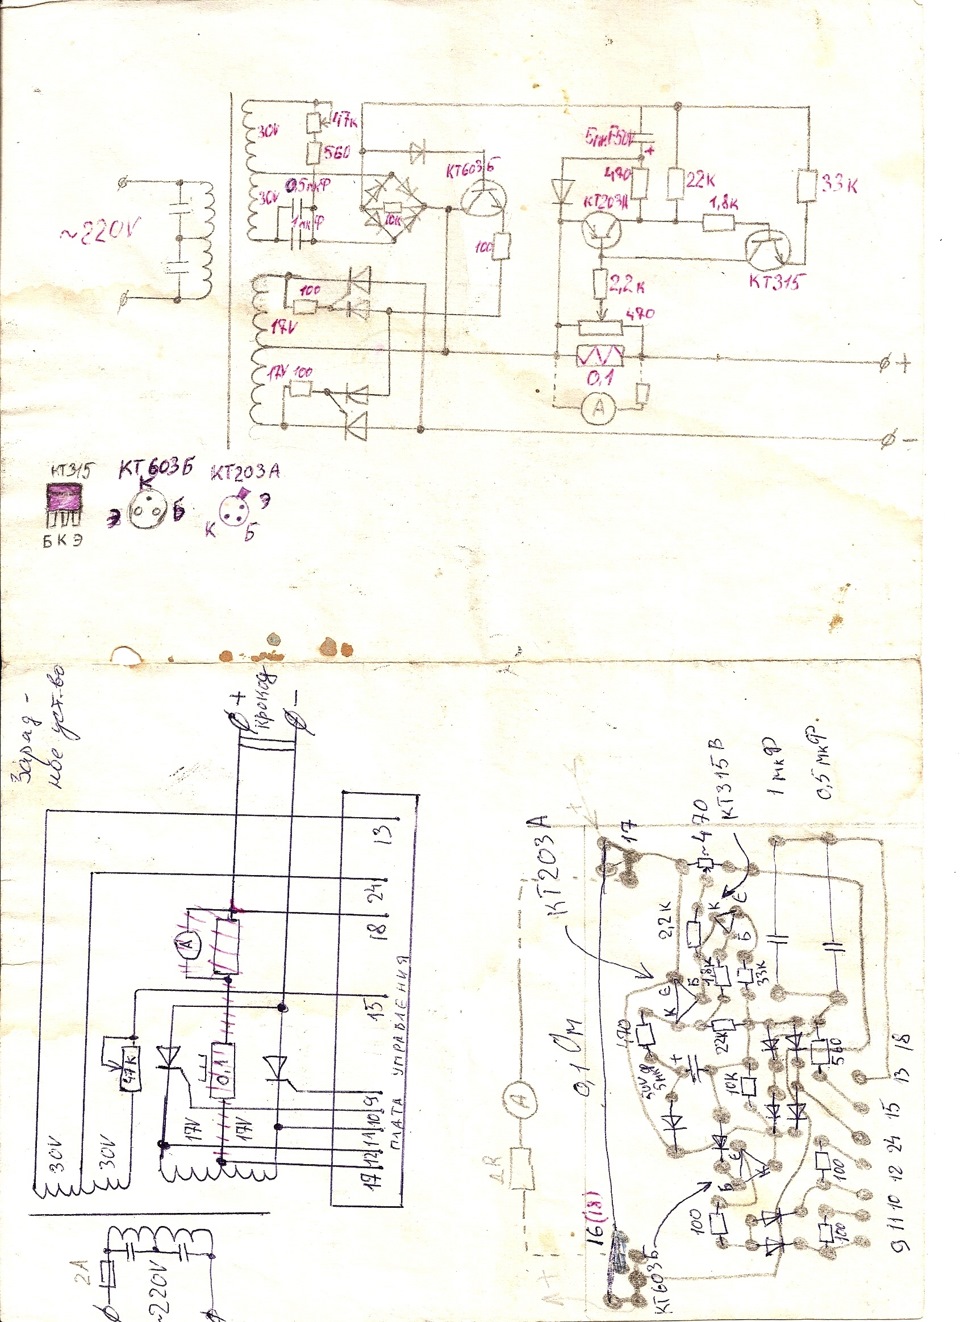 30V
47к
560
30V
0,5мкФ
1мкФ
10к
КТ603Б
100
~220V
100
17V
17V 100
5мкF50V
+
470
22К
33К
КТ203А
1,8к
КТ315
2,2к
470
0,1
А
+
−
КТ315
КТ603Б
КТ203А
К
Э
Б
Э
К
Б
Б К Э
Заряд-
ное уст.во
+
крокод
−
13
24
18
А
15
47к
0,1
17V
17V
30V
30V
9
10
11
12
17
ПЛАТА УПРАВЛЕНИЯ
2А
~220V
КТ203А
+
17
~470
КТ315В
1мкФ
0,5мкФ.
2,2к
К
Є
Б
1,8к
33к
Є
Б
К
470
22к
+
10к
560
0,1 Ом
А
16(18)
КТ603Б
Б
Є
К
100
100
100
9 11 10 12 24 15 13 18